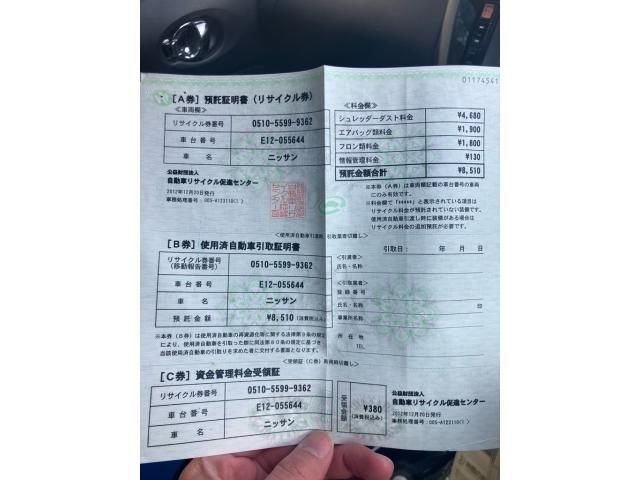 01174541
[A券] 預託証明書 (リサイクル券)
≪車両欄≫
リサイクル券番号 0510-5599-9362
車台番号 E12-055644
車名 ニッサン
公益財団法人
自動車リサイクル促進センター
2012年12月20日発行
事務処理番号:005-A123110(1)
≪料金欄≫
シュレッダーダスト料金 ¥4,680
エアバッグ類料金 ¥1,900
フロン類料金 ¥1,800
情報管理料金 ¥130
預託金額合計 ¥8,510
※本券(A券)は車両欄記載の車台番号の車両
にのみ有効です。
※料金欄で「*****」と表示されている項目は
リサイクル料金が預託されていない装備です。
使用済自動車引渡し時に装備がある場合は
リサイクル料金の追加預託が必要です。
≪使用済自動車引渡時、引取業者切離し≫
[B券] 使用済自動車引取証明書
リサイクル券番号
(移動報告番号) 0510-5599-9362
車台番号 E12-055644
車名 ニッサン
預託金額 ¥8,510 (消費税込み)
※本券(B券)は使用済自動車の再資源化等に関する法律第9条の規定に
より、使用済自動車を引取った際に同法第80条の規定に基づき
当該使用済自動車の引取りを求めた者に交付する書面となります。
引取日: 年 月 日
≪引渡者≫
氏名・名称
≪引取業者≫
登録番号
氏名・名称 印
事業所名称
所在地
TEL
≪受領証(C券)利用時切離し≫
[C券] 資金管理料金受領証
リサイクル券番号 0510-5599-9362
車台番号 E12-055644
車名 ニッサン
受領金額 ¥380
(消費税込み)
公益財団法人
自動車リサイクル促進センター
2012年12月20日発行
事務処理番号:005-A123110(1)